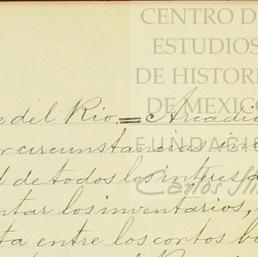 CENTRO D
ESTUDIOS
DE HISTOR
DE MEXIC
FUNDACI
Carlos
del Rio.= Arcadio
circunstancias
de todos los interes
ntar los inventarios,
ta entre los cortos b